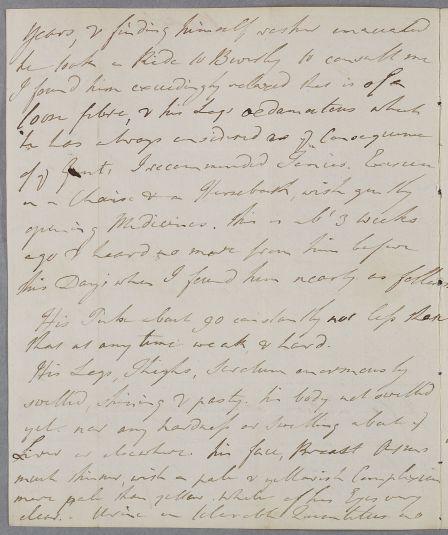 Years, & finding himself rather emaciated
he took a Ride to Beverly to consult me
I found him exceedingly relaxed he is of a
loose fibre, & his Legs oedematous which
he has always considered as ye Consequence
of ye Gout. I recommended Tonics. Exercise
in a Chaise & a Horseback, with gently
opening Medicines. this is abt 3 weeks
ago & heard no more from him before
this Day when I found him nearly as follows
His Pulse about 90 constantly not less than
that at any time weak & hard.
His Legs, Thighs, Scrotum enormously
swelled, shining & pasty. his body not swelled
yet. nor any hardness or swelling about ye
Liver or elsewhere. his face, Breast Arms
much thinner, with a pale & yellowish Complexion
more pale than yellow. white of his Eyes very
clear. Urine in tolerable Quantities no